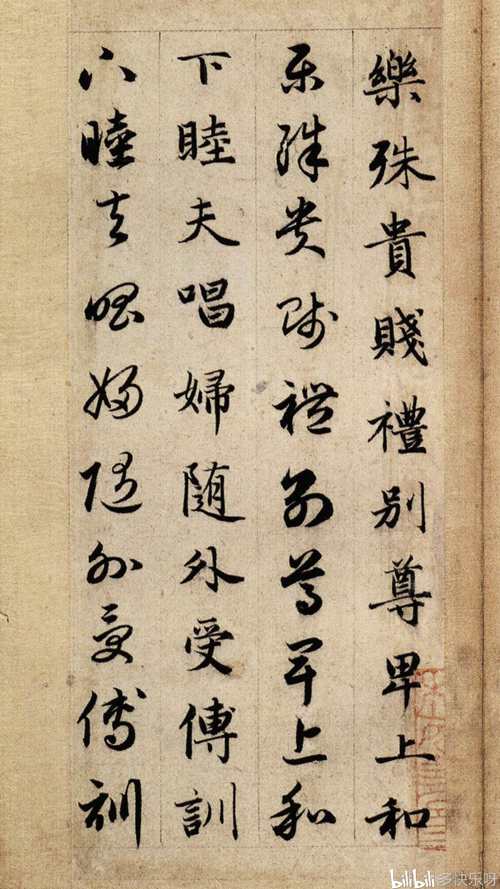 樂殊貴賤禮別尊卑上和
樂殊貴賤禮別尊卑上和
下睦夫唱婦随外受傅訓
下睦夫唱婦随外受傅訓
bilibili 多快乐呀